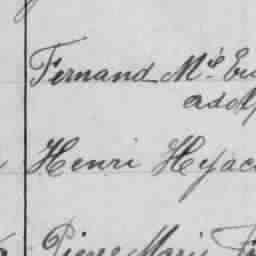 Fernand Mie Eu
adolp
Henri Hyac
Pierre Marie